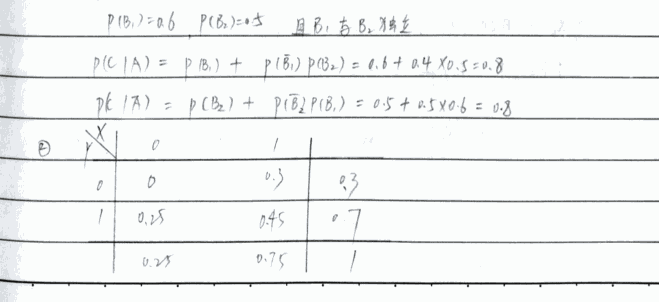 P(B₁)=0.6 P(B₂)=0.5 且B₁与B₂独立
P(C|A) = P(B₁) + P(B̄₁)P(B₂) = 0.6 + 0.4×0.5 = 0.8
P(C|Ā) = P(B₂) + P(B̄₂)P(B₁) = 0.5 + 0.5×0.6 = 0.8
② Y X 0 1
0 0 0.3 0.3
1 0.25 0.45 0.7
0.25 0.75 1